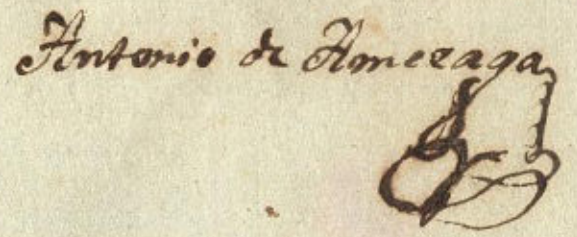 Antonio de Amezaga